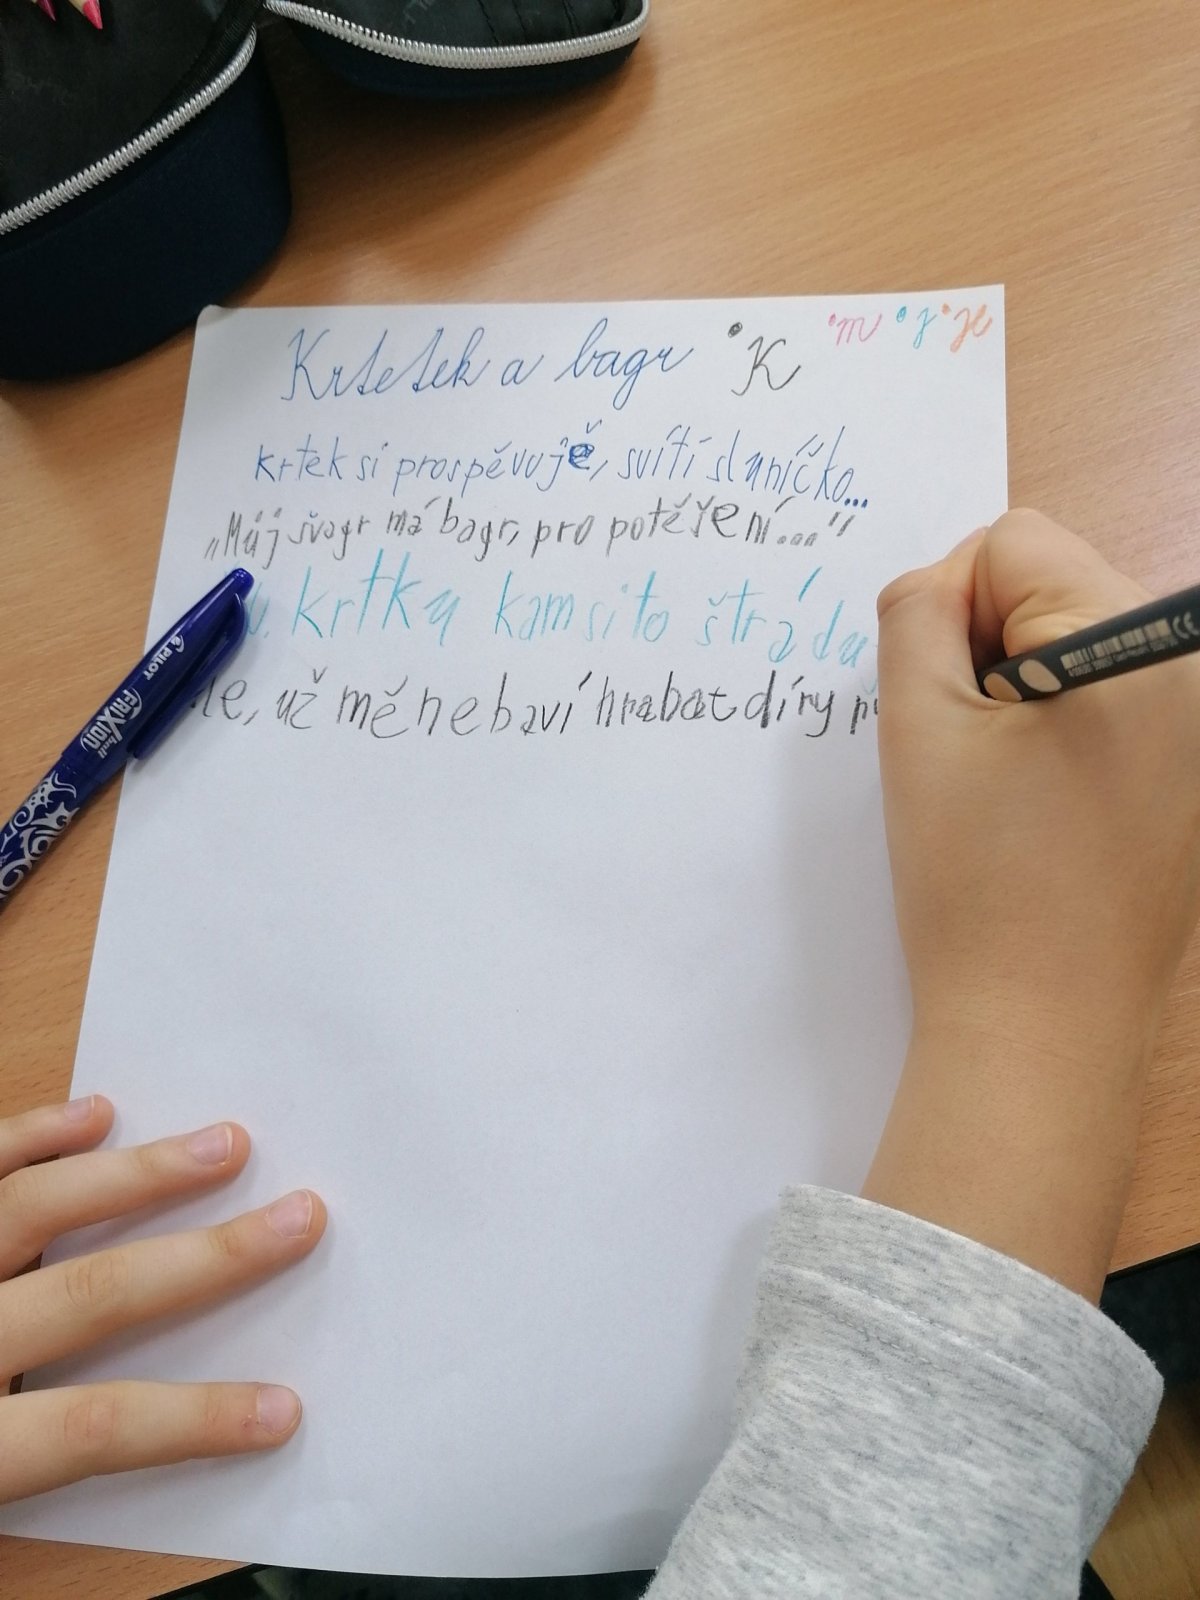 Krtetek a bagr •K •m •j •H
krtek si prospěvuje, svítí sluníčko...
„Můj švagr má bagr, pro potěšení..."
krtku kam si to štrádu
le, už mě nebaví hrabat díry
PILOT
FRIXION ball